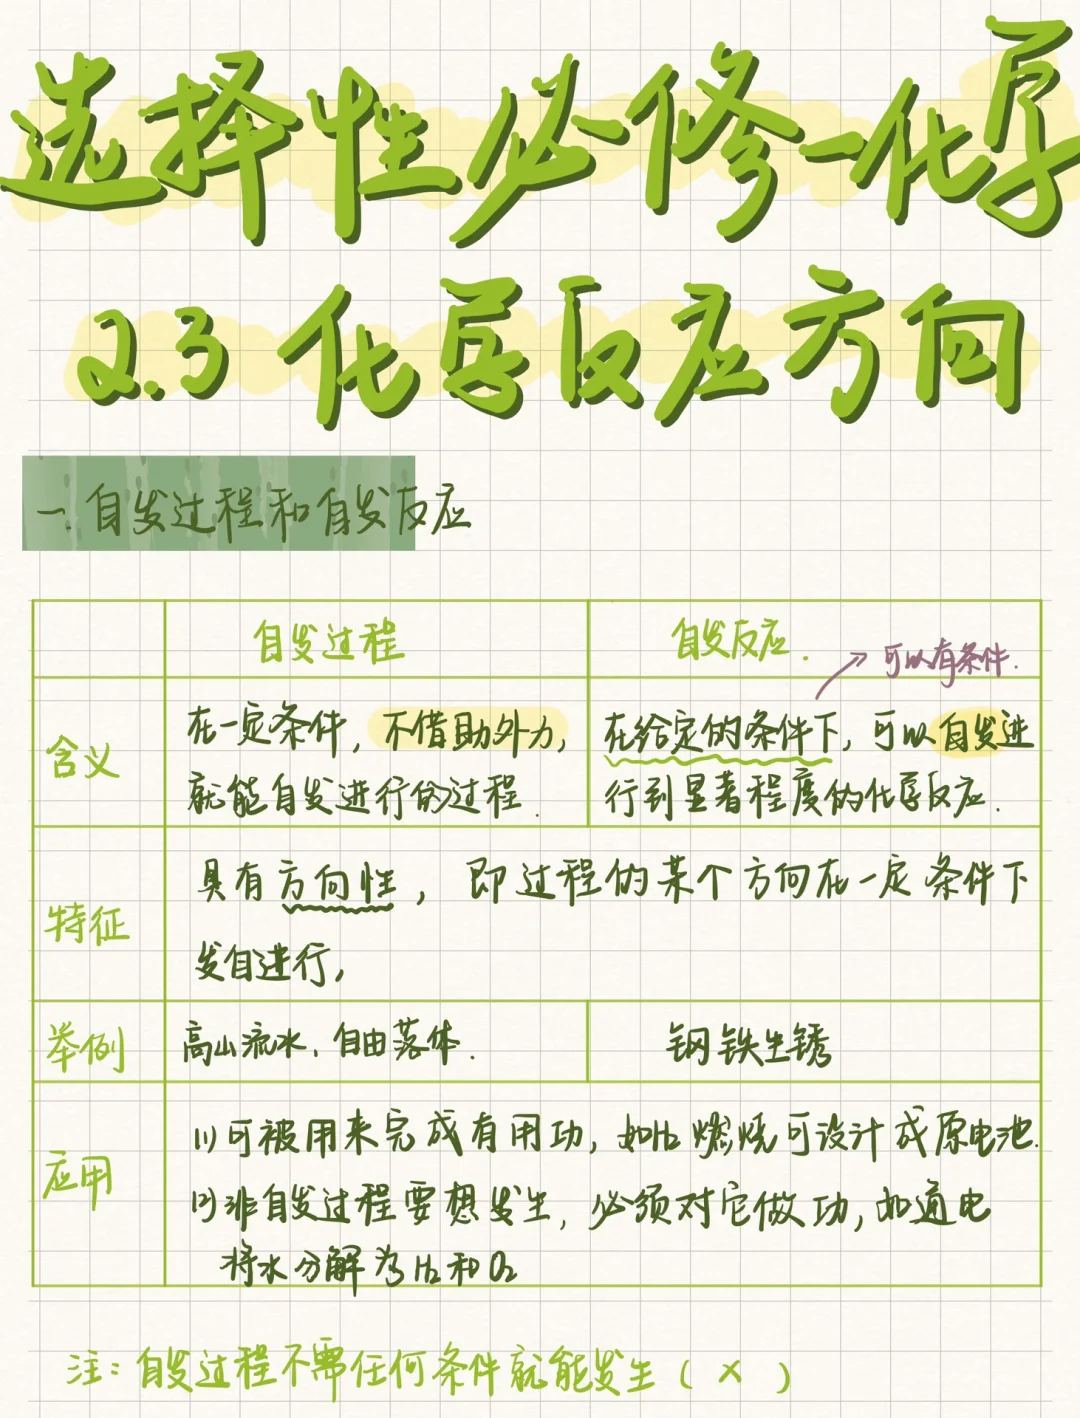 选择性必修一化学
2.3 化学反应方向
一.自发过程和自发反应
自发过程
自发反应.
可以有条件.
含义
在一定条件,不借助外力,
就能自发进行的过程.
在给定的条件下,可以自发进
行到显著程度的化学反应.
特征
具有方向性,即过程的某个方向在一定条件下
发自进行,
举例
高山流水、自由落体.
钢铁生锈
应用
(1)可被用来完成有用功,如H₂燃烧可设计成原电池.
(2)非自发过程要想发生,必须对它做功,如通电
将水分解为H₂和O₂
注:自发过程不需任何条件就能发生(×)